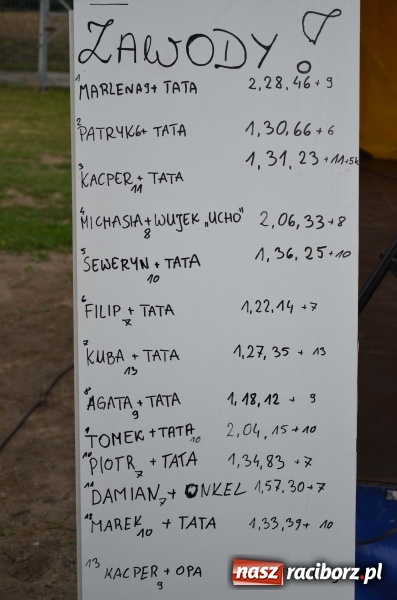 ZAWODY!
1 MARLENA 9 + TATA 2,28,46 + 9
2 PATRYK 6 + TATA 1,30,66 + 6
3 KACPER 11 + TATA 1,31,23 + 11 + 5k
4 MICHASIA 8 + WUJEK „UCHO" 2,06,33 + 8
5 SEWERYN 10 + TATA 1,36,25 + 10
6 FILIP 7 + TATA 1,22,14 + 7
7 KUBA 13 + TATA 1,27,35 + 13
8 AGATA 9 + TATA 1,18,12 + 9
9 TOMEK + TATA 10 2,04,15 + 10
10 PIOTR 7 + TATA 1,34,83 + 7
11 DAMIAN 7 + ONKEL 1,57,30 + 7
12 MAREK 10 + TATA 1,33,39 + 10
13 KACPER 9 + OPA
naszraciborz.pl